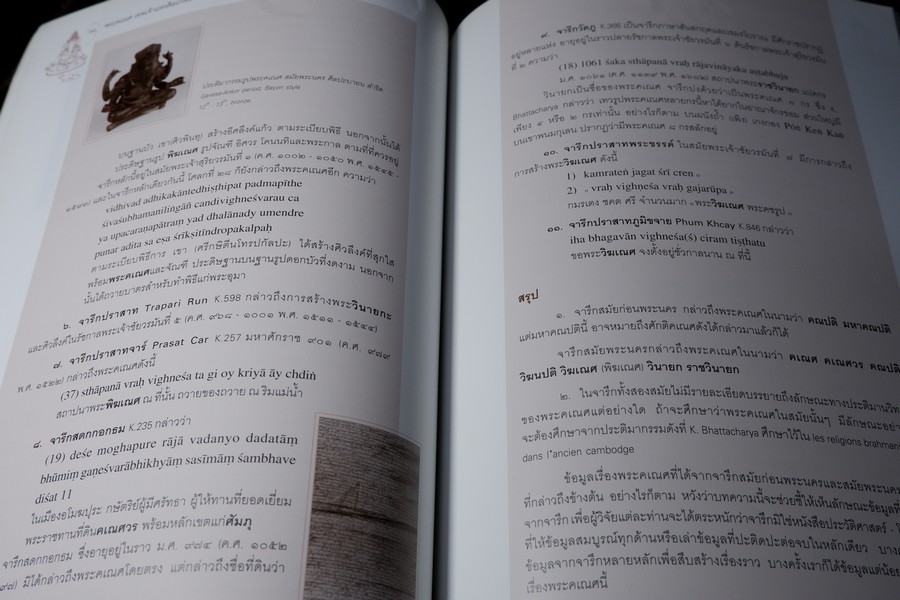 พระคเณศ เทพเจ้าแห่งศิลปากร
ประติมากรรมรูปพระคเณศ สมัยพระนคร ศิลปะบายน สำริด
Ganesa-Ankor period, Bayon style
12th - 13th, bronze
บนฐานบัว เขา(ศิวพินทุ) สร้างอีศลิงค์แก้ว ตามระเบียบพิธี นอกจากนั้นได้
ประดิษฐานรูป พิฆเณศ รูปจัณฑี อิศวร โคนนทิและพระกาล ตามที่ที่ควรอยู่
จารึกหลักนี้อยู่ในสมัยพระเจ้าสุริยวรมันที่ ๑ (ค.ศ. ๑๐๐๒ - ๑๐๕๐ พ.ศ. ๑๕๔๕ -
๑๕๙๓) และในจารึกหลักเดียวกันนี้ โคลกที่ ๒๘ ก็ยังกล่าวถึงพระคเณศอีก ความว่า
vidhivad adhikakāntedhiṣṭhipat padmapīthe
śivaśubhamaniliṅgāṅ candivighneśvarau ca
ya upacaraṇapātraṃ yad dhalānady umendre
punar adita sa eṣa śrīkṣitīndropakalpaḥ
ตามระเบียบพิธีการ เขา (ศรีกษิตีนโทรปกัลปะ) ได้สร้างศิวลึงค์ที่สุกใส
พร้อมพระคเณศและจัณฑี ประดิษฐานบนฐานรูปดอกบัวที่งดงาม นอกจาก
นั้นได้ถวายบาตรสำหรับทำพิธีแก่พระอุมา
๖. จารึกปราสาท Trapari Run K.598 กล่าวถึงการสร้างพระวินายกะ
และศิวลึงค์ในรัชกาลพระเจ้าชัยวรมันที่ ๕ (ค.ศ. ๙๖๘ - ๑๐๐๑ พ.ศ. ๑๕๑๑ - ๑๕๔๔)
๗. จารึกปราสาทจาร์ Prasat Car K.257 มหาศักราช ๙๐๑ (ค.ศ. ๙๗๙
พ.ศ. ๑๕๒๒) กล่าวถึงพระคเณศดังนี้
(37) sthāpanā vraḥ vighneśa ta gi oy kriyā āy chdiṅ
สถาปนาพระพิฆเณศ ณ ที่นั้น ถวายของถวาย ณ ริมแม่น้ำ
๘. จารึกสดกกอกธม K.235 กล่าวว่า
(19) deśe moghapure rājā vadanyo dadatāṃ
bhūmiṃ gaṇeśvarābhikhyāṃ sasīmāṃ śambhave
diśat 11
ในเมืองอโมฆปุระ กษัตริย์ผู้มีศรัทธา ผู้ให้ทานที่ยอดเยี่ยม
พระราชทานที่ดินคเณศวร พร้อมหลักเขตแก่ศัมภุ
จารึกสดกกอกธม ซึ่งอายุอยู่ในราว ม.ศ. ๙๗๔ (ค.ศ. ๑๐๕๒
มิได้กล่าวถึงพระคเณศโดยตรง แต่กล่าวถึงชื่อที่ดินว่า
๙. จารึกวัดภู K.366 เป็นจารึกภาษาสันสกฤตและเขมรโบราณ มีศักราชปรากฏ
อยู่หลายแห่ง อายุอยู่ในราวปลายรัชกาลพระเจ้าชัยวรมันที่ ๖ ต้นรัชกาลพระเจ้าสุริยวรมัน
ที่ ๒ ความว่า
(18) 1061 śaka sthāpanā vraḥ rājavināyaka astabhuja
ม.ศ. ๑๐๖๑ (ค.ศ. ๑๑๓๙ พ.ศ. ๑๖๘๒) สถาปนาพระราชวินายก แปดกร
วินายกเป็นชื่อของพระคเณศ จารึกบ่งด้วยว่าเป็นพระคเณศ ๘ กร ซึ่ง K.
Bhattacharya กล่าวว่า เทวรูปพระคเณศหลายกรนี้หาได้ยากในอาณาจักรขอม ส่วนใหญ่มี
เพียง ๔ หรือ ๒ กรเท่านั้น อย่างไรก็ตาม บนผนังถ้ำ เพิง เกงกอง Pön Keń Kań
บนเขาพนมกุเลน ปรากฏว่ามีพระคเณศ ๘ กรสลักอยู่
๑๐. จารึกปราสาทพระขรรค์ ในสมัยพระเจ้าชัยวรมันที่ ๗ มีการกล่าวถึง
การสร้างพระวิฆเณศ ดังนี้
1) kamrateṅ jagat śrī cren »
2) « vraḥ vighneśa vraḥ gajarūpa »
กมรเตง ชคต ศรี จำนวนมาก «พระวิฆเณศ พระคชรูป »
๑๑. จารึกปราสาทภูมิขจาย Phum Khcay K.846 กล่าวว่า
iha bhagavān vighneśa(ś) ciram tiṣṭhatu
ขอพระวิฆเณศ จงตั้งอยู่ชั่วกาลนาน ณ ที่นี้
สรุป
๑. จารึกสมัยก่อนพระนคร กล่าวถึงพระคเณศในนามว่า คณปติ มหาคณปติ
แต่มหาคณปตินี้ อาจหมายถึงศักติคเณศดังได้กล่าวมาแล้วก็ได้
จารึกสมัยพระนครกล่าวถึงพระคเณศในนามว่า คเณศ คเณศวร คณปติ
วิฆนปติ วิฆเณศ (พิฆเณศ) วินายก ราชวินายก
๒. ในจารึกทั้งสองสมัยไม่มีรายละเอียดบรรยายถึงลักษณะทางประติมานวิท
ของพระคเณศแต่อย่างใด ถ้าจะศึกษาว่าพระคเณศในสมัยนั้นๆ มีลักษณะอย่า
จะต้องศึกษาจากประติมากรรมดังที่ K. Bhattacharya ศึกษาไว้ใน les religions brahmani
dans l'ancien cambodge
ข้อมูลเรื่องพระคเณศที่ได้จากจารึกสมัยก่อนพระนครและสมัยพระนคร
ที่กล่าวถึงข้างต้น อย่างไรก็ตาม หวังว่าบทความนี้จะช่วยชี้ให้เห็นลักษณะข้อมูลที่
จากจารึก เพื่อผู้วิจัยแต่ละท่านจะได้ตระหนักว่าจารึกมิใช่หนังสือประวัติศาสตร์ -
ที่ให้ข้อมูลสมบูรณ์ทุกด้านหรือเล่าข้อมูลที่ปะติดปะต่อจบในหลักเดียว บาง
ข้อมูลจากจารึกหลายหลักเพื่อสืบสร้างเรื่องราว บางครั้งเราก็ได้ข้อมูลแต่น้อย
เรื่องพระคเณศนี้